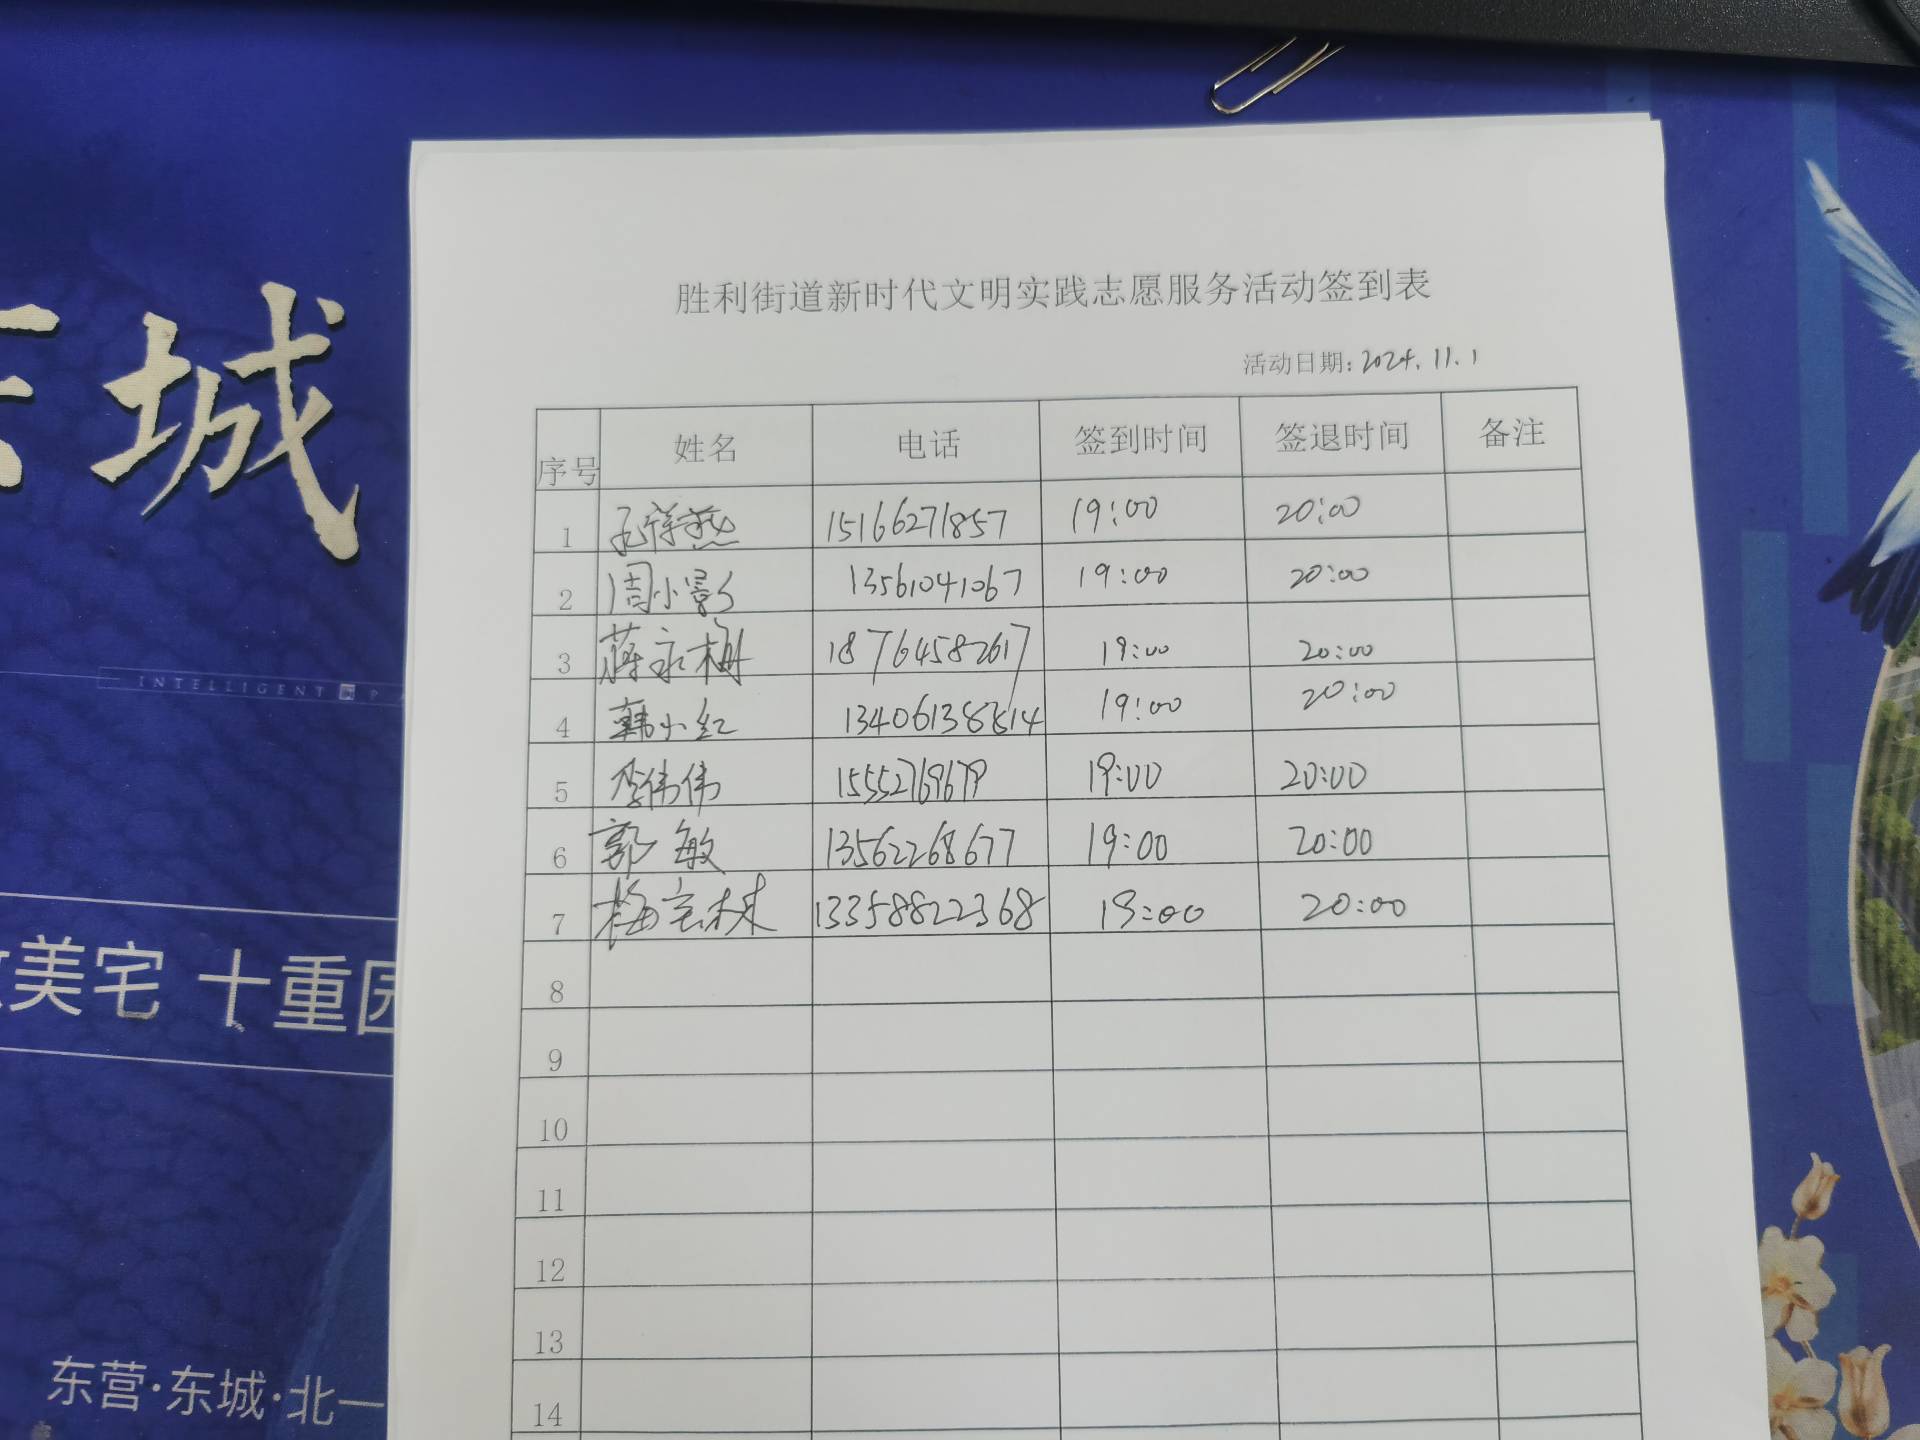 东城
INTELLIGENT
美宅 十重园
东营·东城·北一
胜利街道新时代文明实践志愿服务活动签到表
活动日期:2024.11.1
序号 姓名 电话 签到时间 签退时间 备注
1 孔祥燕 15166271857 19:00 20:00
2 周小影 13561041067 19:00 20:00
3 蒋永梅 18764582617 19:00 20:00
4 韩小红 13406138814 19:00 20:00
5 李伟伟 15552769679 19:00 20:00
6 郭敏 13562268677 19:00 20:00
7 梅宝林 13358822368 19:00 20:00
8
9
10
11
12
13
14